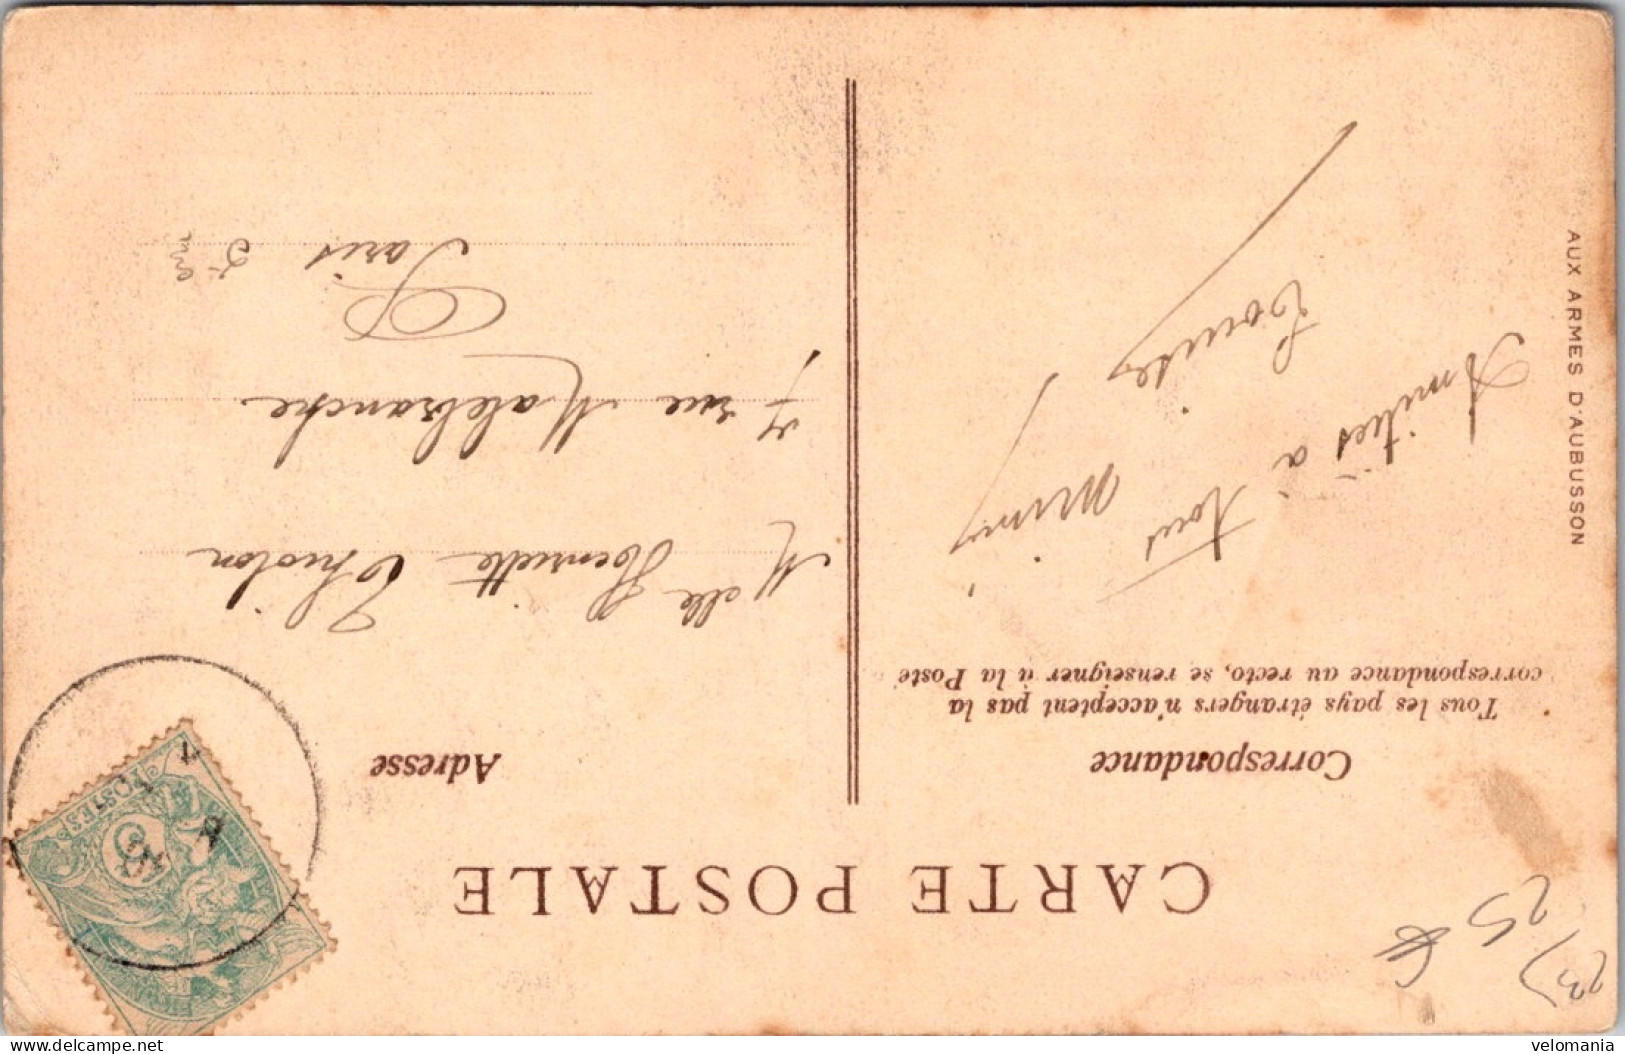 CARTE POSTALE
Correspondance
Tous les pays étrangers n'acceptent pas la
correspondance au recto, se renseigner à la Poste
Amitiés à
tous
Mimi
Adresse
Melle Henriette Thiolon
7 rue Malebranche
Paris 5e
AUX ARMES D'AUBUSSON
POSTES
5
23)
25 €
delcampe.net
velomania